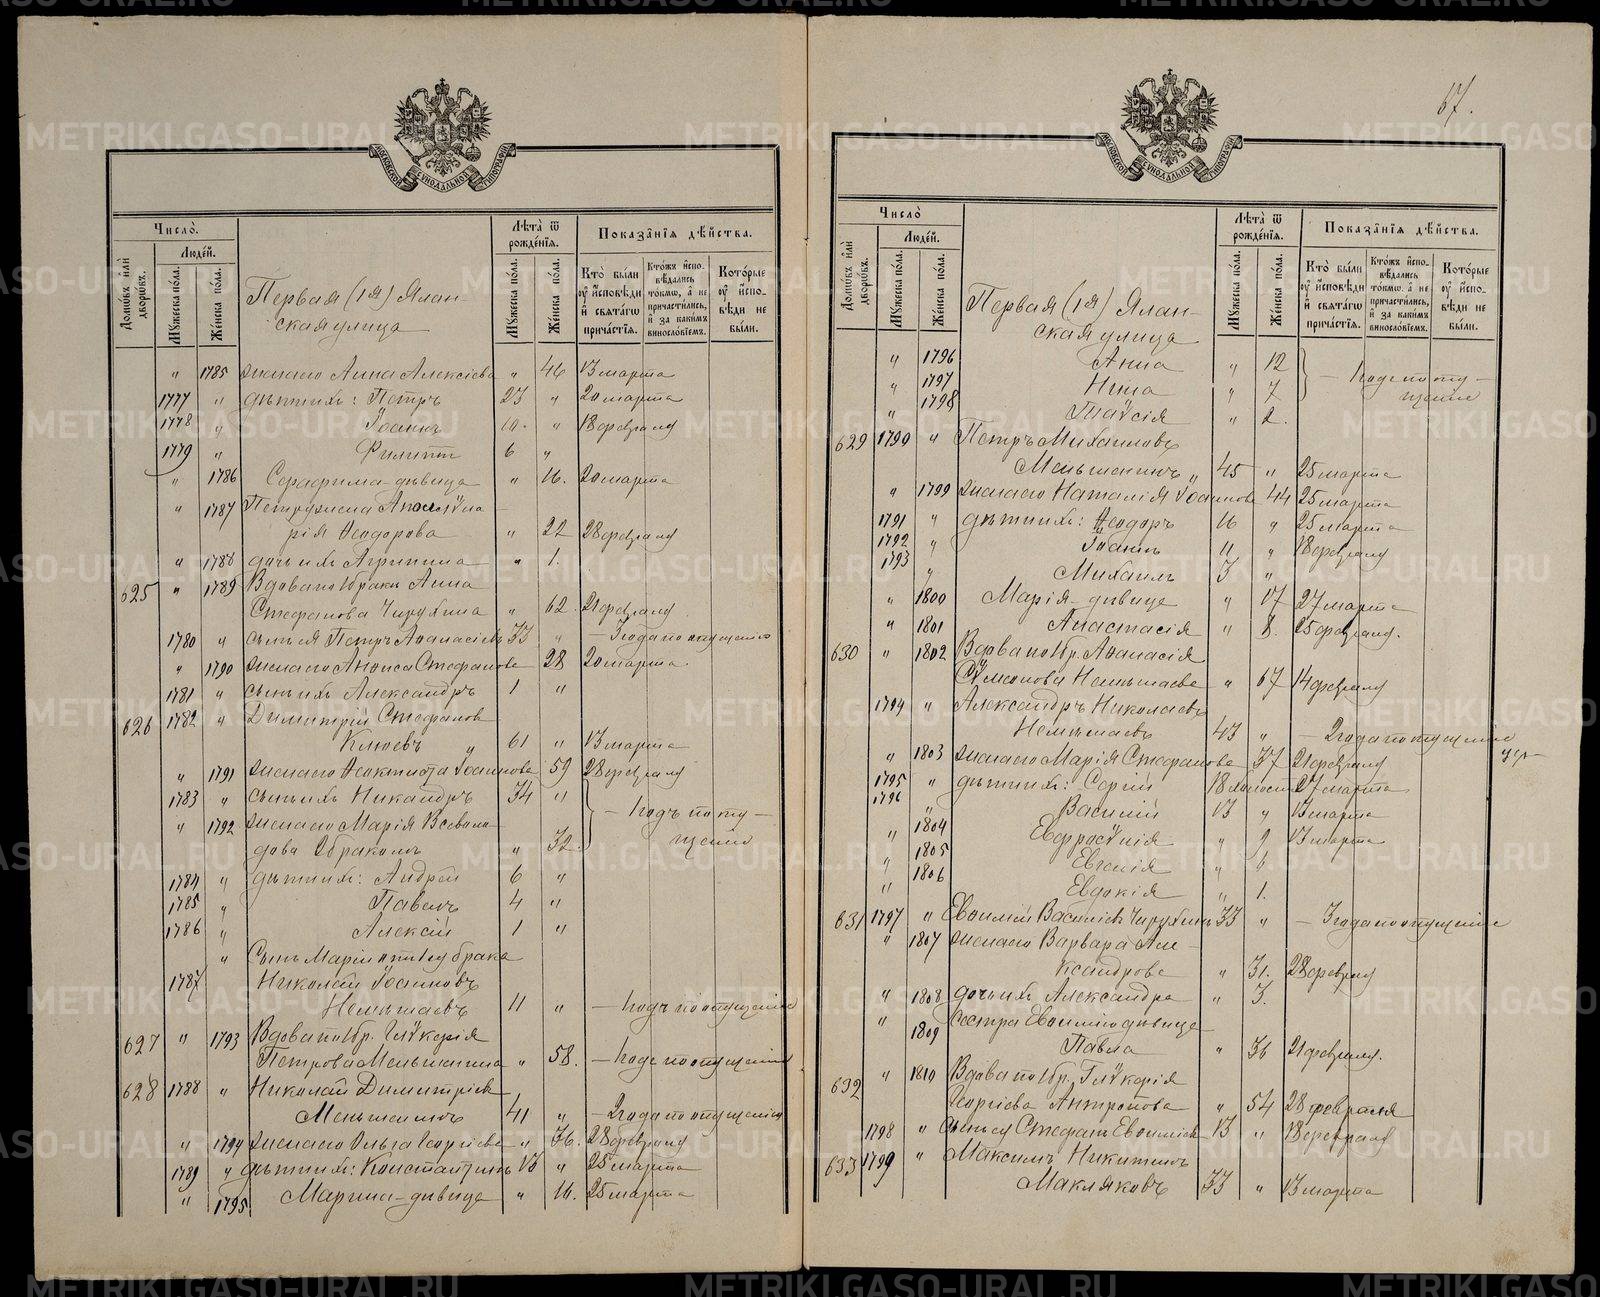 67.
МОСКОВСКОЙ СѴНОДАЛЬНОЙ ТИПОГРАФІИ
Число̀.
Люде́й.
Домѡ́въ и҆лѝ дворѡ́въ.
Мꙋ́жеска по́ла.
Же́нска по́ла.
Первая (1я) Ялан-
ская улица
Лѣта̀ ѿ рожде́нїѧ.
Мꙋ́жеска по́ла.
Же́нска по́ла.
Показа̑нїѧ дѣ́йства.
Кто̀ бы́ли ᲂу҆ и҆сповѣди и҆ свѧта́гѡ прича́стїѧ.
Кто́жъ и҆спо-вѣдались то́кмѡ, а҆ не причасти́лись, и҆ за каки́мъ винослові́емъ.
Кото́рые ᲂу҆ и҆спо-вѣди не бы́ли.
" 1785 жена его Анна Алексіева " 46 13 марта
1777 " дѣти ихъ: Петръ 23 " 20 марта
1778 " Іоаннъ 10. " 18 февраля
1779 " Филиппъ 6 "
" 1786 Серафима-дѣвица " 16. 20 марта
" 1787 Петра жена Аполлина-
рія Ѳеодорова " 22 28 февраля
" 1788 дочь ихъ Агрипина " 1.
625 " 1789 Вдова по 1 бракѣ Анна
Стефанова Чирухина " 62. 21 февраля
1780 " сынъ ея Петръ Аѳанасіевъ 33 " — 3 года по опущенію
" 1790 жена его Аниса Стефанова 28 20 марта.
1781 " сынъ ихъ Александръ 1 "
626 1782 " Димитрій Стефановъ
Клюевъ " 61 " 13 марта
" 1791 жена его Ѳеоктиста Іоаннова 59 28 февраля
1783 " сынъ ихъ Никандръ 34 "
" 1792 жена его Марія Всеволо-
дова 2 бракомъ " 32. — 1 годъ по опу-
щенію
1784 " дѣти ихъ: Андрей 6 "
1785 " Павелъ 4 "
1786 " Алексій 1 "
" Сынъ Маріи отъ 1го брака
1787 Николай Іоанновъ
Немытаевъ 11 " — 1 годъ по опущенію
627 " 1793 Вдова по 1 бр. Глѵкерія
Петрова Меньшенина " 58. — 1 годъ по опущенію
628 1788 " Николай Димитріевъ
Меньшенинъ 41 " — 2 года по опущенію
" 1794 жена его Ольга Георгіева " 36. 28 февраля
1789 " дѣти ихъ: Константинъ 13 " 25 марта
" 1795 Марина-дѣвица " 16. 25 марта
Число̀
Люде́й.
Домѡ́въ и҆лѝ дворѡ́въ.
Мꙋ́жеска по́ла.
Же́нска по́ла.
Первая (1я) Ялан-
ская улица
Лѣта̀ ѿ рожде́нїѧ.
Мꙋ́жеска по́ла.
Же́нска по́ла.
Показа̑нїѧ дѣ́йства.
Кто̀ бы́ли ᲂу҆ и҆сповѣди и҆ свѧта́гѡ прича́стїѧ.
Кто́жъ и҆спо-вѣдались то́кмѡ, а҆ не причасти́лись, и҆ за каки́мъ винослові́емъ.
Кото́рые ᲂу҆ и҆спо-вѣди не бы́ли.
" 1796 Анна " 12
" 1797 Нина " 7 — 1 годъ по опу-
щенію
" 1798 Таисія " 2.
629 1790 " Петръ Михаиловъ
Меньшенинъ " 45 " 25 марта
" 1799 жена его Наталія Іоаннова 44 25 марта
1791 " дѣти ихъ: Ѳеодоръ 16 " 25 марта
1792 " Іоаннъ 11 " 18 февраля
1793 " Михаилъ 3 "
" 1800 Марія-дѣвица " 17 27 марта
" 1801 Анастасія " 8. 25 февраля.
630 " 1802 Вдова по 1 бр. Аѳанасія
Сѵмеонова Немытаева " 67 14 февраля
1794 " Александръ Николаевъ
Немытаевъ 43 " — 2 года по опущенію
" 1803 жена его Марія Стефанова 37 21 февраля
1795 " дѣти ихъ: Сергій 18 холостъ 27 марта
1796 " Василій 13 " 13 марта
" 1804 Евфросинія " 9 13 марта
" 1805 Евгенія " 6
" 1806 Евдокія " 1.
631 1797 " Евѳимій Василіевъ Чирухинъ 33 " — 3 года по опущенію
" 1807 жена его Варвара Але-
ксандрова " 31. 28 февраля
" 1808 дочь ихъ Александра " 3.
" 1809 Сестра Евѳимія дѣвица
Павла " 36 21 февраля.
632 " 1810 Вдова по 1 бр. Глѵкерія
Георгіева Антропова " 54 28 февраля
1798 " Сынъ ея Стефанъ Евѳиміевъ 13 " 18 февраля
633 1799 " Максимъ Никитинъ
Макляковъ 33 " 13 марта
METRIKI.GASO-URAL.RU